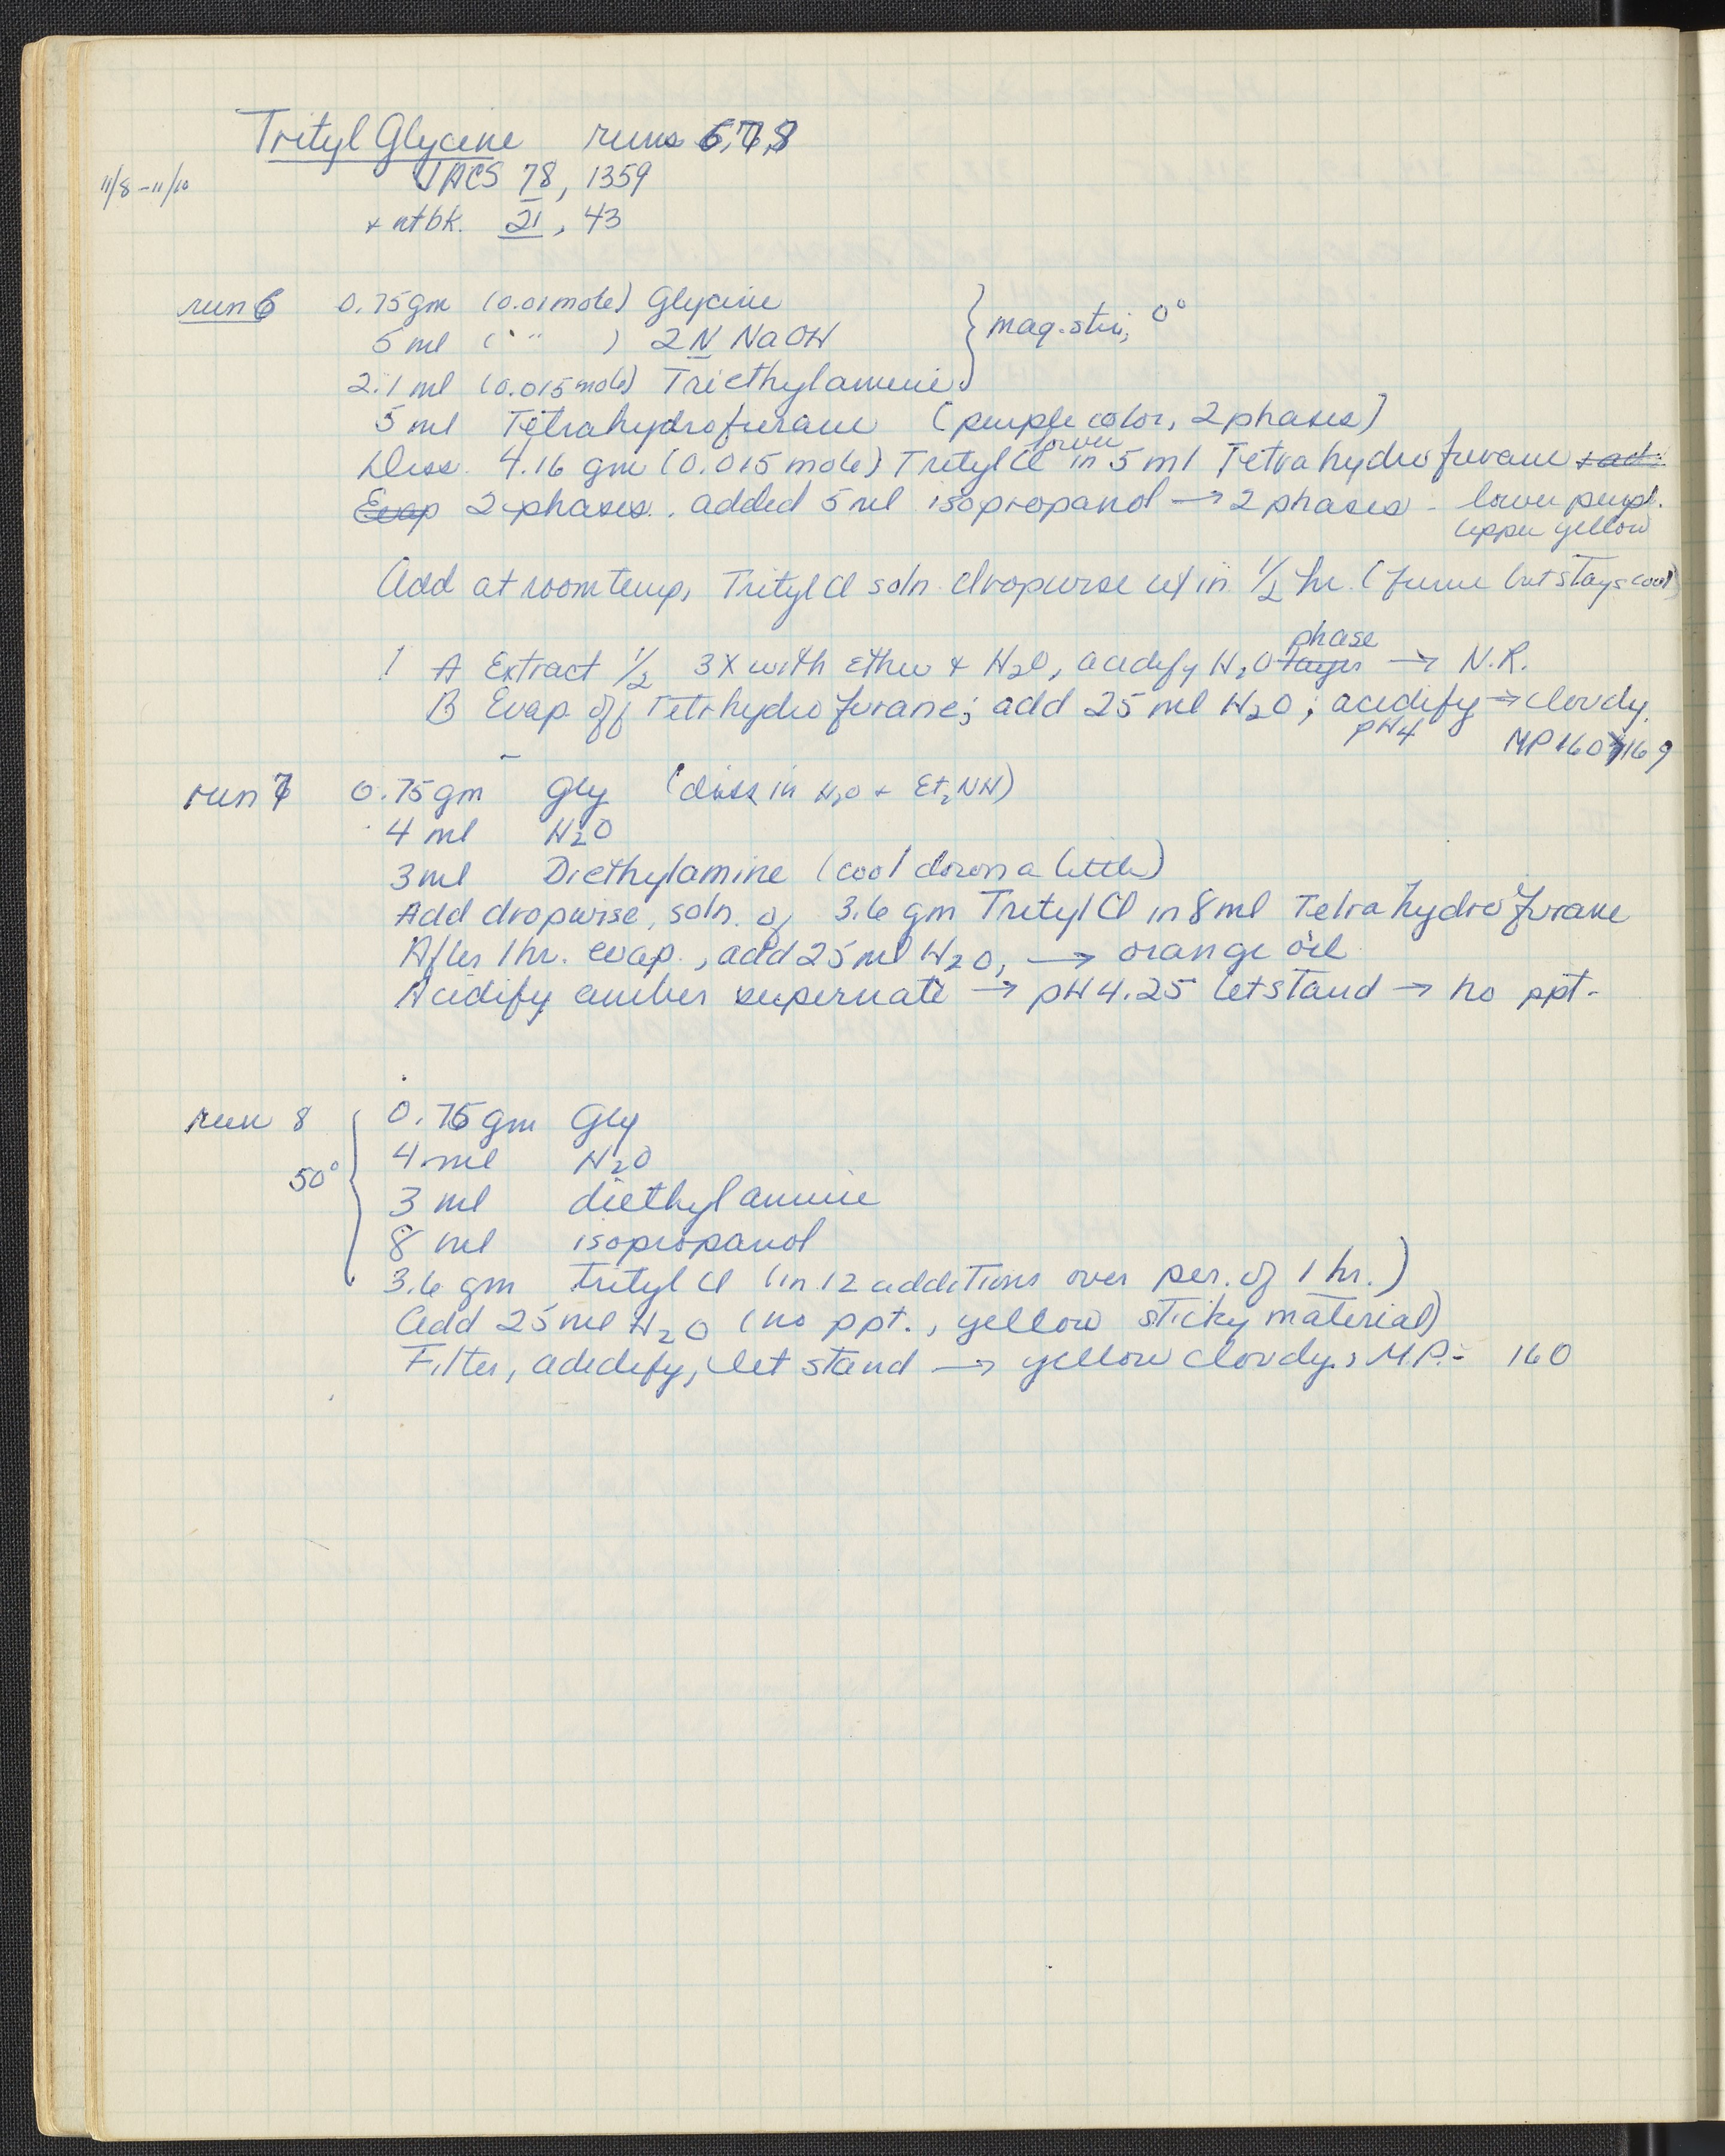 Trityl Glycine runs 6,7,8
11/8 - 11/10
JACS 78, 1359
+ ntbk. 21, 43
run 6 0.75gm (0.01mole) Glycine
5 ml ( " " ) 2N NaOH } mag. stir, 0°
2.1 ml (0.015mole) Triethylamine
5 ml Tetrahydrofurane (purple color, 2 phases)
Diss. 4.16 gm (0.015 mole) Trityl Cl in 5 ml Tetrahydrofurane
Evap 2 phases. added 5 ml isopropanol → 2 phases - lower purpl.
upper yellow
Add at room temp, Trityl Cl soln dropwise w/in 1/2 hr. (fume but stays cool)
phase
! A Extract 1/2 3X with ether + H2O, acidify H2O layer → N.R.
B Evap. off Tetrhydrofurane; add 25 ml H2O; acidify → cloudy.
pH4 MP 160-169
run 7 0.75gm Gly (diss in H2O + Et2NH)
4 ml H2O
3 ml Diethylamine (cool down a little)
Add dropwise, soln. of 3.6 gm Trityl Cl in 8 ml Tetrahydrofurane
After 1 hr. evap., add 25 ml H2O, → orange oil
Acidify amber supernate → pH 4.25 let stand → no ppt.
run 8 0.75 gm Gly
4 ml H2O
50°
3 ml diethylamine
8 ml isopropanol
3.6 gm trityl Cl (in 12 additions over per. of 1 hr.)
Add 25 ml H2O (no ppt., yellow sticky material)
Filter, adidify, let stand → yellow cloudy, M.P. = 160